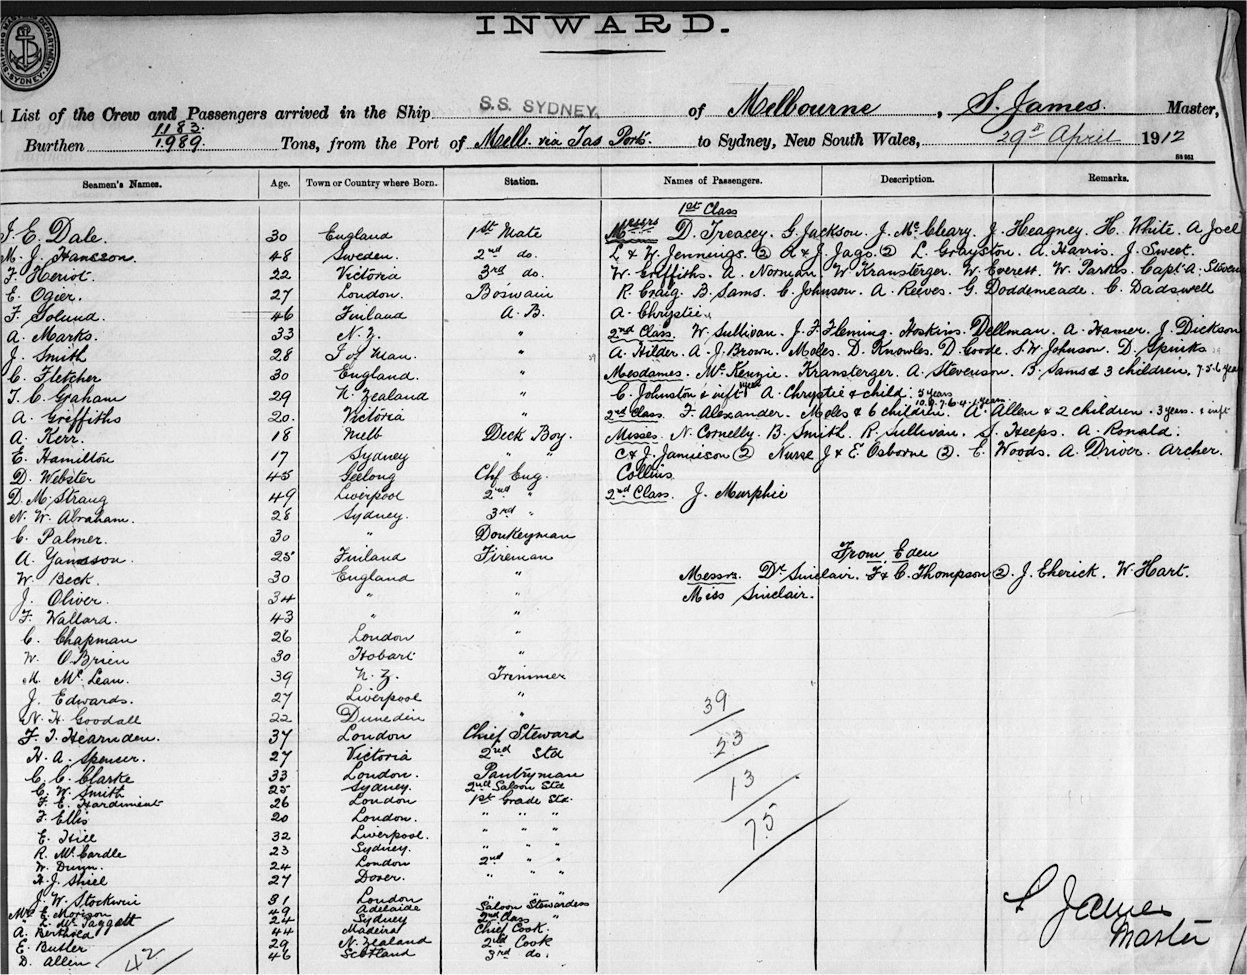 SHIPPING MASTERS DEPARTMENT SYDNEY
INWARD.
List of the Crew and Passengers arrived in the Ship S.S. SYDNEY, of Melbourne, S. James. Master,
Burthen 1183. 1989. Tons, from the Port of Melb. via Tas Ports. to Sydney, New South Wales, 29th April 1912
Seamen's Names. Age. Town or Country where Born. Station. Names of Passengers. Description. Remarks.
1st Class
E. Dale. 30 England 1st Mate Messrs D. Treacey. G. Jackson. J. McCleary. J. Heagney. H. White. A Joel
M. J. Hansson. 48 Sweden. 2nd do. L & W. Jennings. 2 A & J. Jago. 2 L. Grayston. A. Harris. J. Sweet.
F. Heriot. 22 Victoria 3rd do. W. Griffiths. A. Norman. W. Kransterger. W. Everett. W. Parkes. Capt. A. Stevens
E. Ogier. 27 London. Boswain R. Craig. B. Sams. C. Johnson. A. Reeves. G. Doddemeade. C. Dadswell
F. 46 Finland A. B. A. Chrystie.
A. Marks. 33 N. Z. " 2nd Class. W. Sullivan. J. F. Fleming. Hoskins. Dellman. A. Hamer. J. Dickson
J. Smith 28 I of Man. " A. Hilder. A. J. Brown. Moles. D. Knowles. D. Goode. S. W. Johnson. D. Spinks
C. Fletcher 30 England. " Mesdames. McKenzie. Kransterger. A. Stevenson. B. Sams & 3 children. 7.5.6 years
T. C. Graham 29 N. Zealand " C. Johnston & inft 1 year A. Chrystie & child. 5 years
A. Griffiths 20. Victoria " 2nd Class. F. Alexander. Moles & 6 children. 10.9.7.6.4.1 years A. Allen & 2 children. 3 years. & inft
A. Kerr. 18 Melb Deck Boy. Misses. N. Cornelly. B. Smith. R. Sullivan. S. Heeps. A. Ronald.
E. Hamilton 17 Sydney " " C & J. Jamieson 2 Nurse J & E. Osborne 2. E. Woods. A. Driver. Archer.
D. Webster 45 Geelong Chf Eng. Collins
D. M. Strang 49 Liverpool 2nd " 2nd Class. J. Murphie
N. W. Abraham. 28 Sydney. 3rd "
C. Palmer. 30 " Donkeyman
A. Yansson. 25 Finland Fireman From Eden
W. Beck. 30 England " Messrs. Dr Sinclair. F & C. Thompson 2. J. Cherick. W. Hart.
J. Oliver. 34 " " Miss Sinclair.
F. Wallard. 43 " "
C. Chapman 26 London "
W. O'Brien 30 Hobart "
M. McLean. 39 N. Z. Trimmer
J. Edwards. 27 Liverpool "
N. H. Goodall 22 Dunedin "
F. J. Hearnden. 37 London Chief Steward
H. A. Spencer. 27 Victoria 2nd Std
C. C. Clarke 33 London. Pantryman
C. W. Smith 25 Sydney. 2nd Saloon Std
F. E. Hardiment 26 London 1st Grade Std.
F. Ellis 20 London. " " "
E. Hill 32 Liverpool. " " "
R. McCardle 23 Sydney. " " "
W. Dunn. 24 London 2nd " "
H. J. Shiel 27 Dover. " " "
J. W. Stockwin 31 London " "
Mrs E. Morison 49 Adelaide Saloon Stewardess
" L. McTaggatt 24 Sydney 2nd Class "
A. Berthold 44 Madeira Chief Cook.
E. Butler 29 N. Zealand 2nd Cook
D. Allen 46 Scotland 3rd do.
42
39
23
13
75
S James
Master